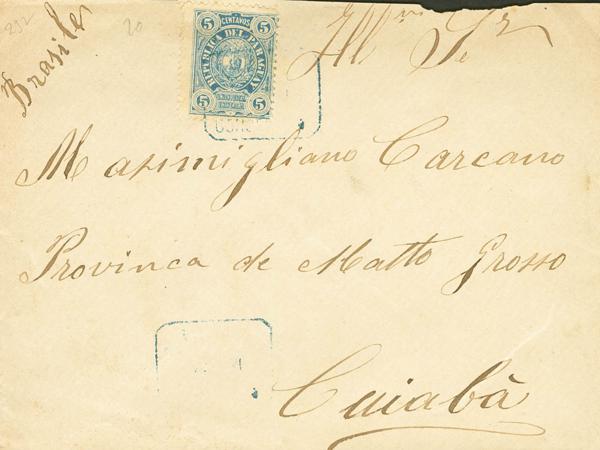 292
20
Brasile
5 CENTAVOS 5
REPUBLICA DEL PARAGUAY
5 5
Ill.mo Sr
Masimigliano Carcano
Provinca de Matto Grosso
Cuiabà